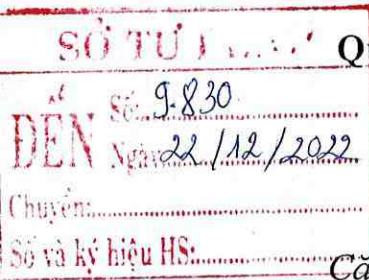 SỞ TƯ
Qu
ĐẾN
Số: 9.830
Ngày: 22/12/2022
Chuyển:
Số và ký hiệu HS:
Că